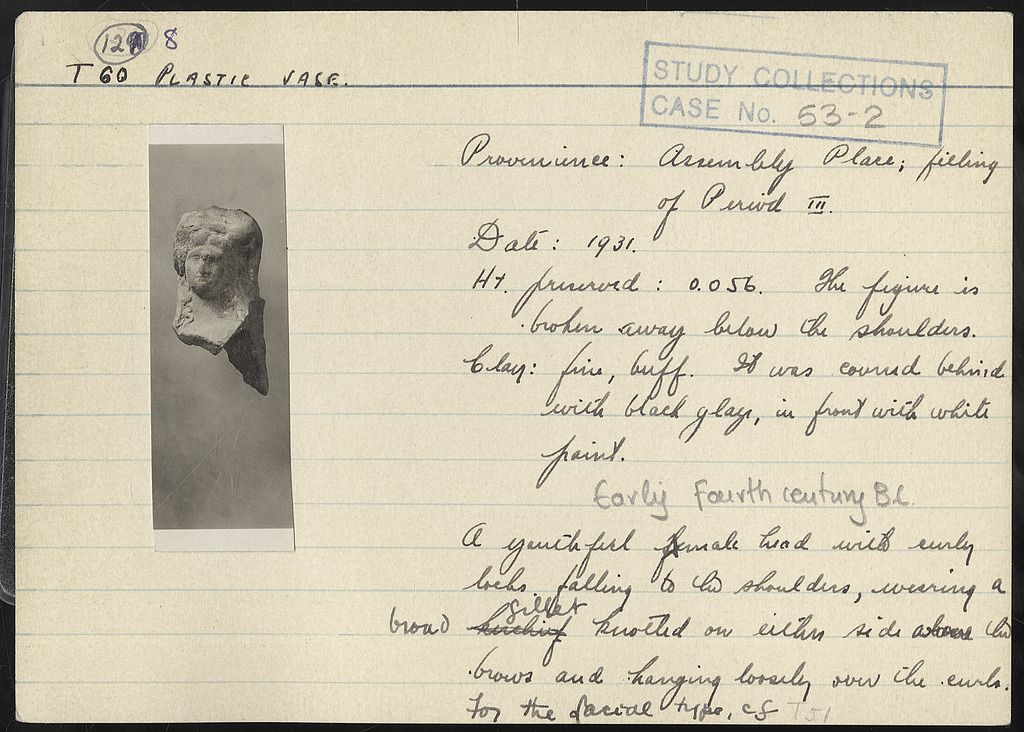 129 8
T 60 PLASTIC VASE.
STUDY COLLECTIONS
CASE No. 53-2
Provenience: Assembly Place; filling
of Period III.
Date: 1931.
Ht. preserved: 0.056. The figure is
broken away below the shoulders.
Clay: fine, buff. It was covered behind
with black glaze, in front with white
paint.
Early Fourth century B.C.
A youthful female head with curly
locks falling to the shoulders, wearing a
fillet
broad kerchief knotted on either side above the
brows and hanging loosely over the curls.
For the facial type, cf T51